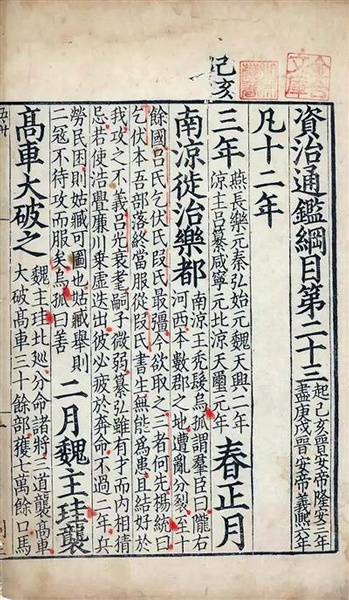 己亥
資治通鑑綱目第二十三
起己亥晉安帝隆安三年
盡庚戌晉安帝義熙六年
凡十二年
三年
燕長樂元秦弘始元魏天興二年
涼主呂纂咸寧元北涼天璽元年
春正月
南涼徙治樂都
南涼王禿髮烏孤謂羣臣曰隴右
河西本數郡之地遭亂分裂至十
餘國呂氏乞伏氏段氏最彊今欲取之三者何先楊統曰
乞伏本吾部落終當服從段氏書生無能爲患且結好於
我攻之不義呂光衰耄嗣子微弱纂弘雖有才而內相猜
忌若使浩亹廉川乘虛迭出彼必疲於奔命不過二年兵
勞民困則姑臧可圖也姑臧舉則
二冦不待攻而服矣烏孤曰善
二月魏主珪襲
高車大破之
魏主珪北廵分命諸將三道襲高車
大破高車三十餘部獲七萬餘口馬